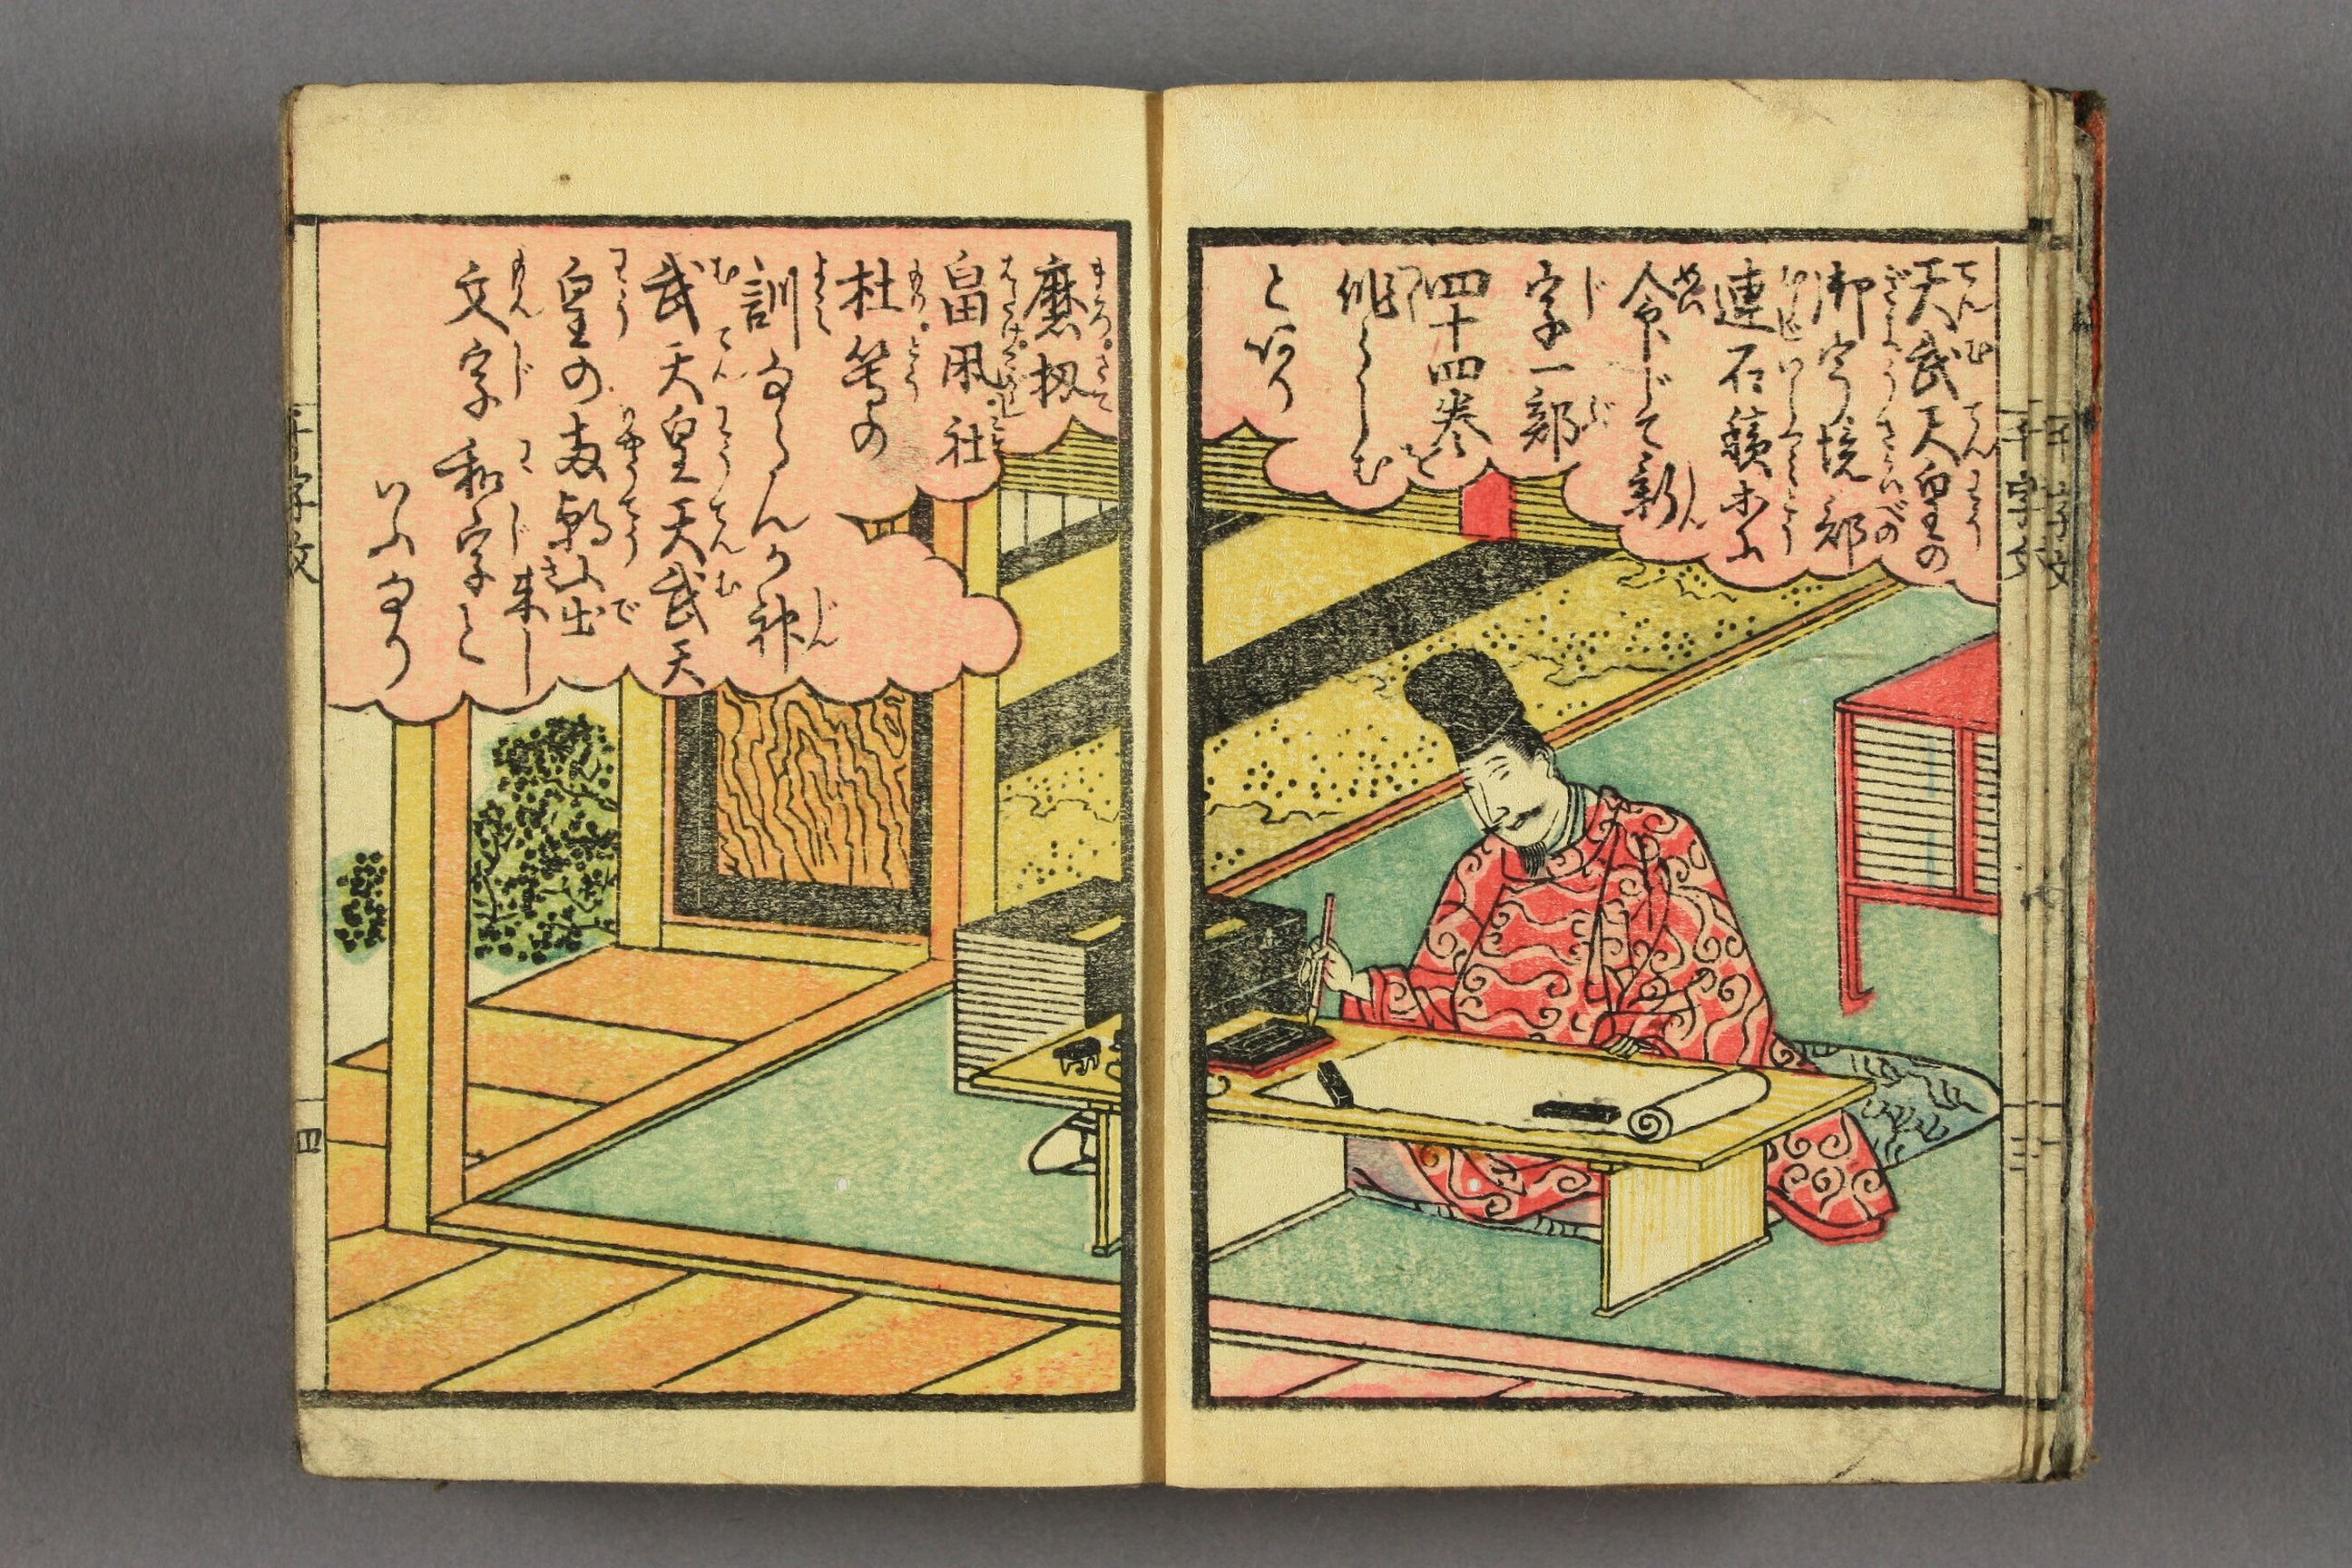 天武天皇の
御宇境部
連石積等に
令じて新
字一部
四十四巻を
作らしむ
とあり
麿扨
畠凩社
杜等の
訓ならんか神
武天皇天武天
皇の両朝に出
来し
文字和字と
いふなり
千字文
四